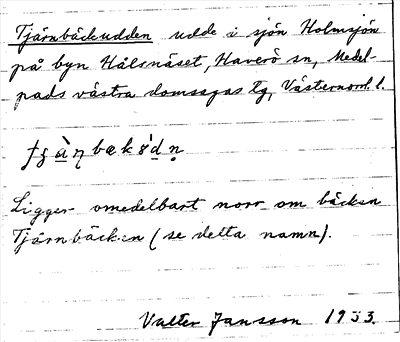 Tjärnbäckudden udde i sjön Holmsjön
på byn Hålsnäset, Haverö sn, Medel-
pads västra domsagas tg, Västernorrl. l.
Ligger omedelbart norr om bäcken
Tjärnbäcken (se detta namn).
Valter Jansson 1933.